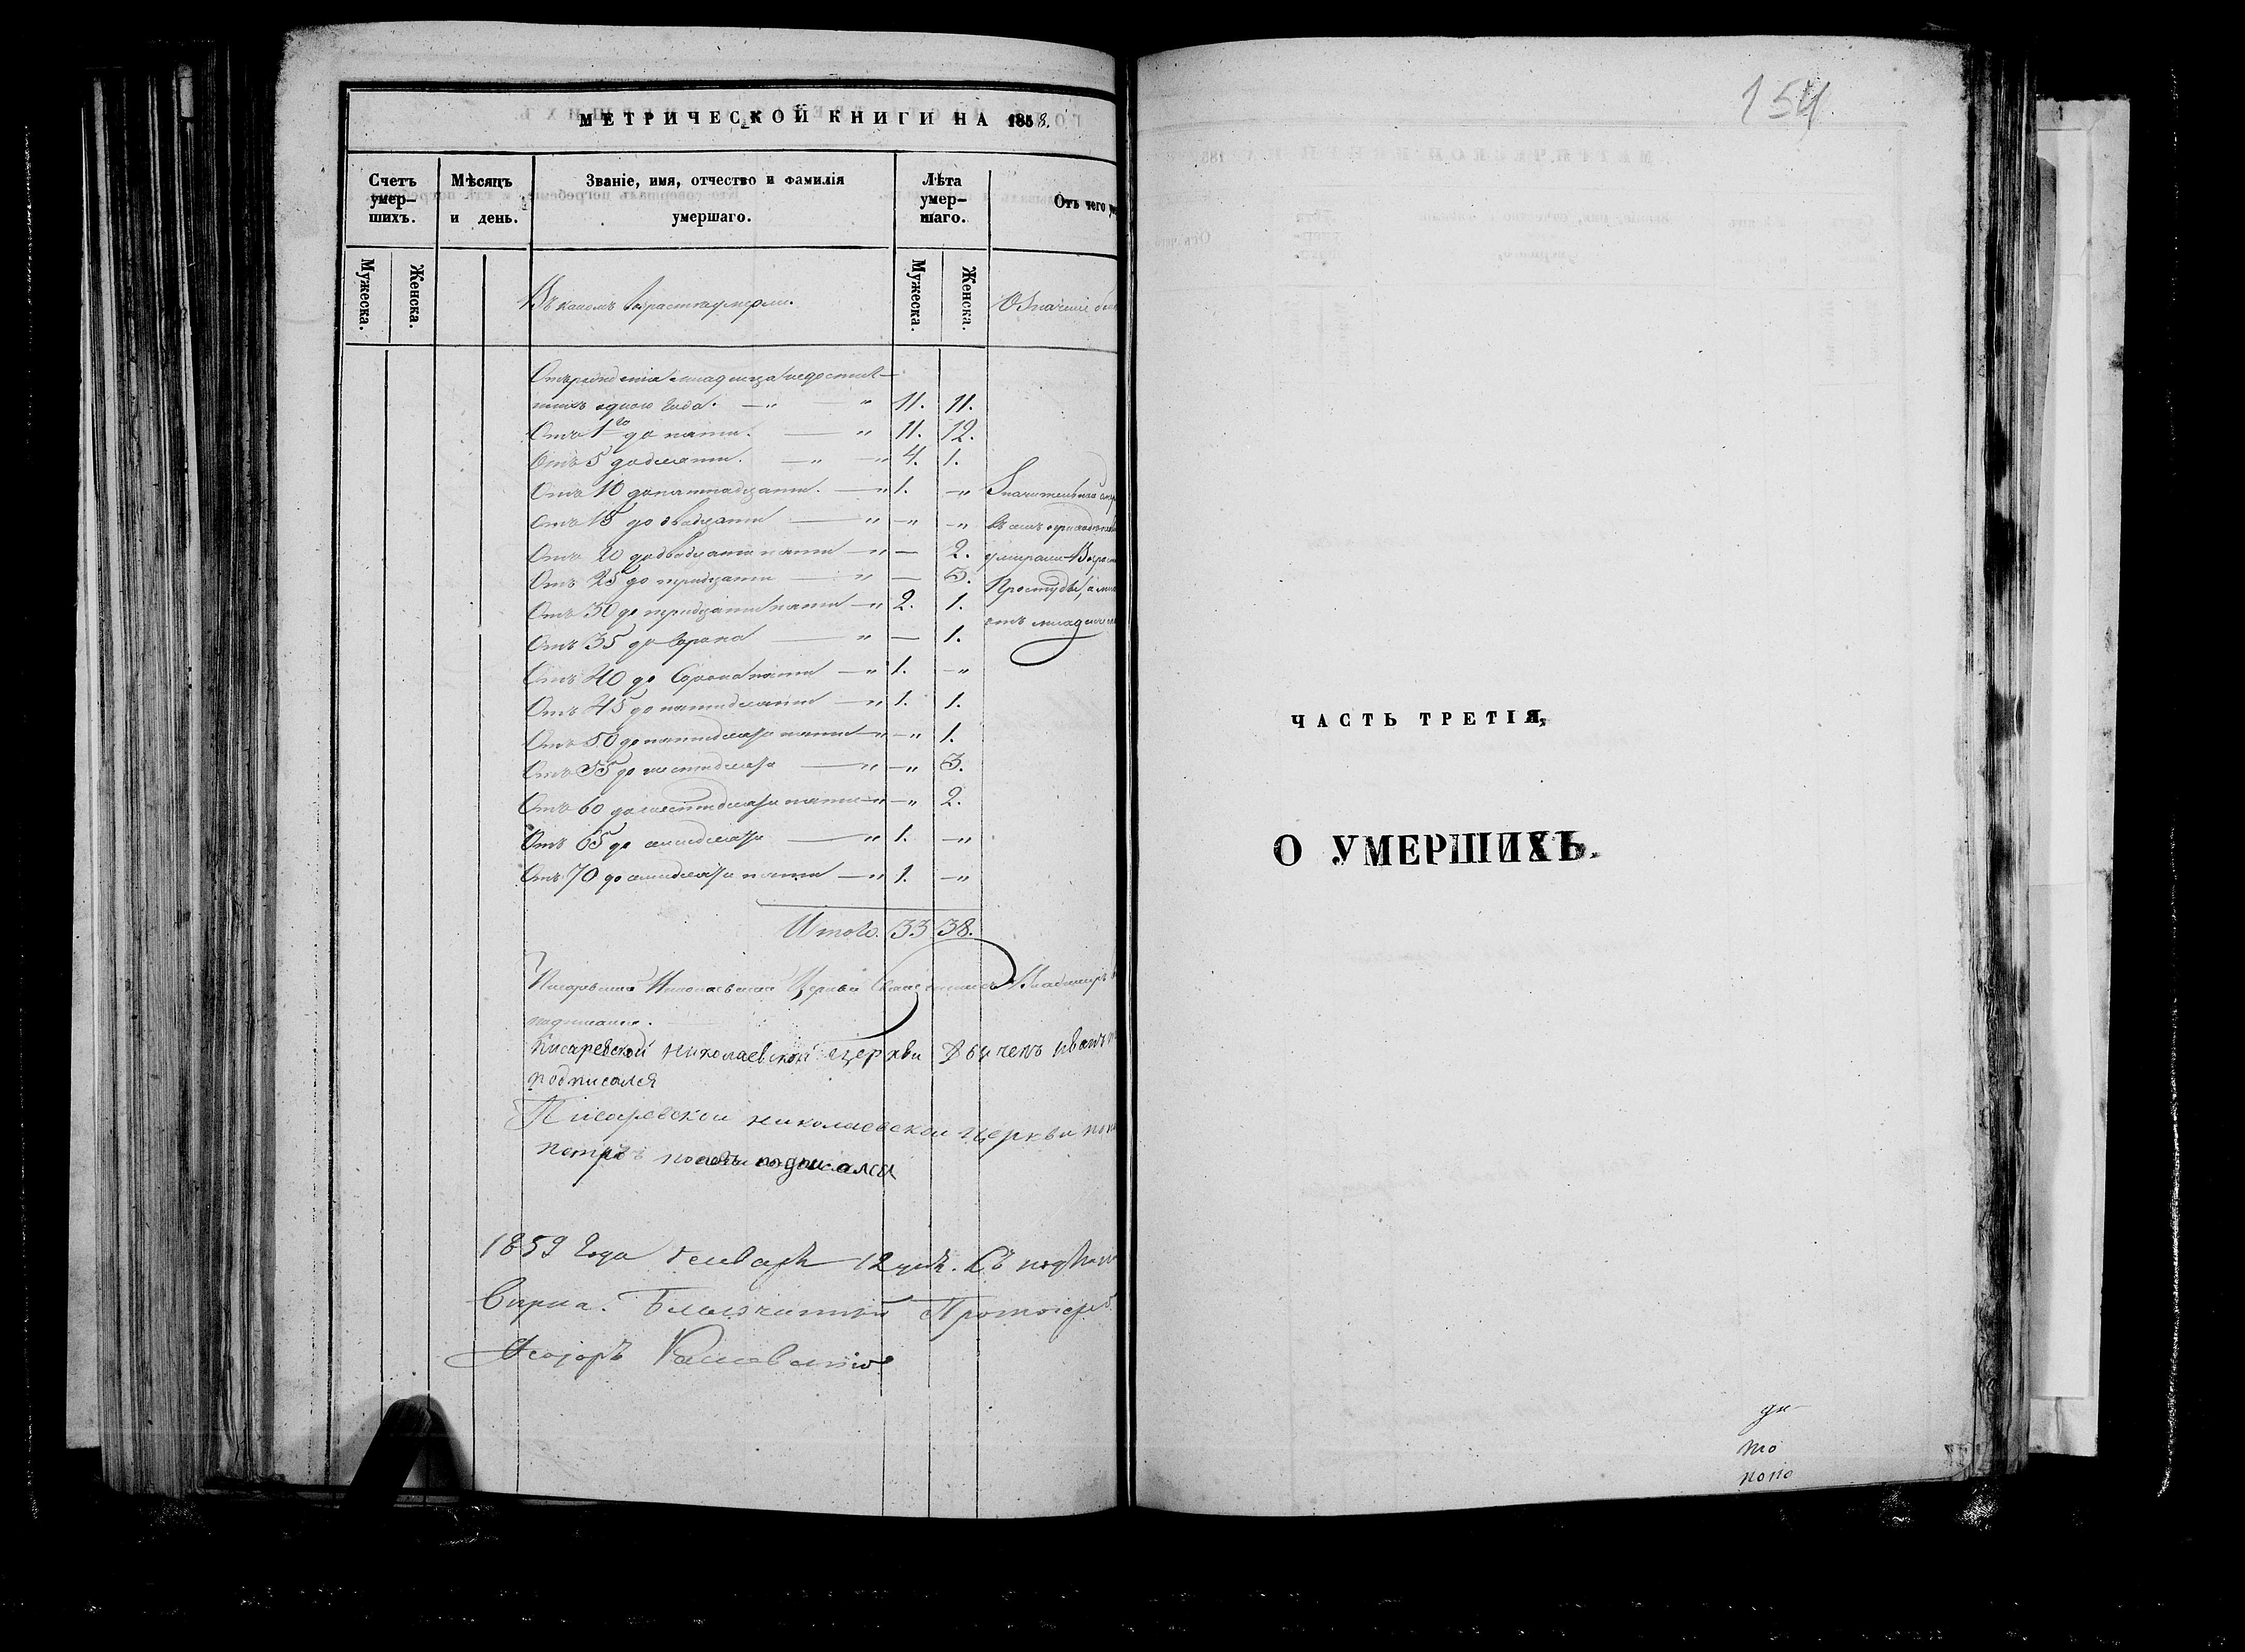 МЕТРИЧЕСКОЙ КНИГИ НА 1858.
Счетъ умер-шихъ.
Мѣсяцъ и день.
Званіе, имя, отчество и фамилія умершаго.
Лѣта умер-шаго.
Отъ чего
Мужеска.
Женска.
Въ какомъ возрастѣ умерли.
Мужеска.
Женска.
Отъ рожденія младенца недостиг-
шихъ одного года. 11. 11.
Отъ 1го до пяти. 11. 12.
Отъ 5 до десяти. 4. 1.
Отъ 10 до пятнадцати. 1. "
Отъ 15 до двадцати " "
Отъ 20 до двадцати пяти — 2.
Отъ 25 до тридцати — 3.
Отъ 30 до тридцати пяти 2. 1.
Отъ 35 до сорока — 1.
Отъ 40 до сорока пяти 1. "
Отъ 45 до пятидесяти 1. 1.
Отъ 50 до пятидесяти пяти " 1.
Отъ 55 до шестидесяти " 3.
Отъ 60 до шестидесяти пяти " 2.
Отъ 65 до семидесяти 1. "
Отъ 70 до семидесяти пяти 1. "
въ семъ
умирали
Простуды,
отъ
Итого. 33 38.
Николаевской Церкви Священникъ Владимиръ
подписался.
Писаревской николаевской церкви
подписался
Писаревской николаевской церкви
петръ поповъ подписался
1859 года Генваря 12 дня. Съ
Благочинный Протоіерей
Ѳеодоръ
154
ЧАСТЬ ТРЕТІЯ,
О УМЕРШИХЪ.
то
попо